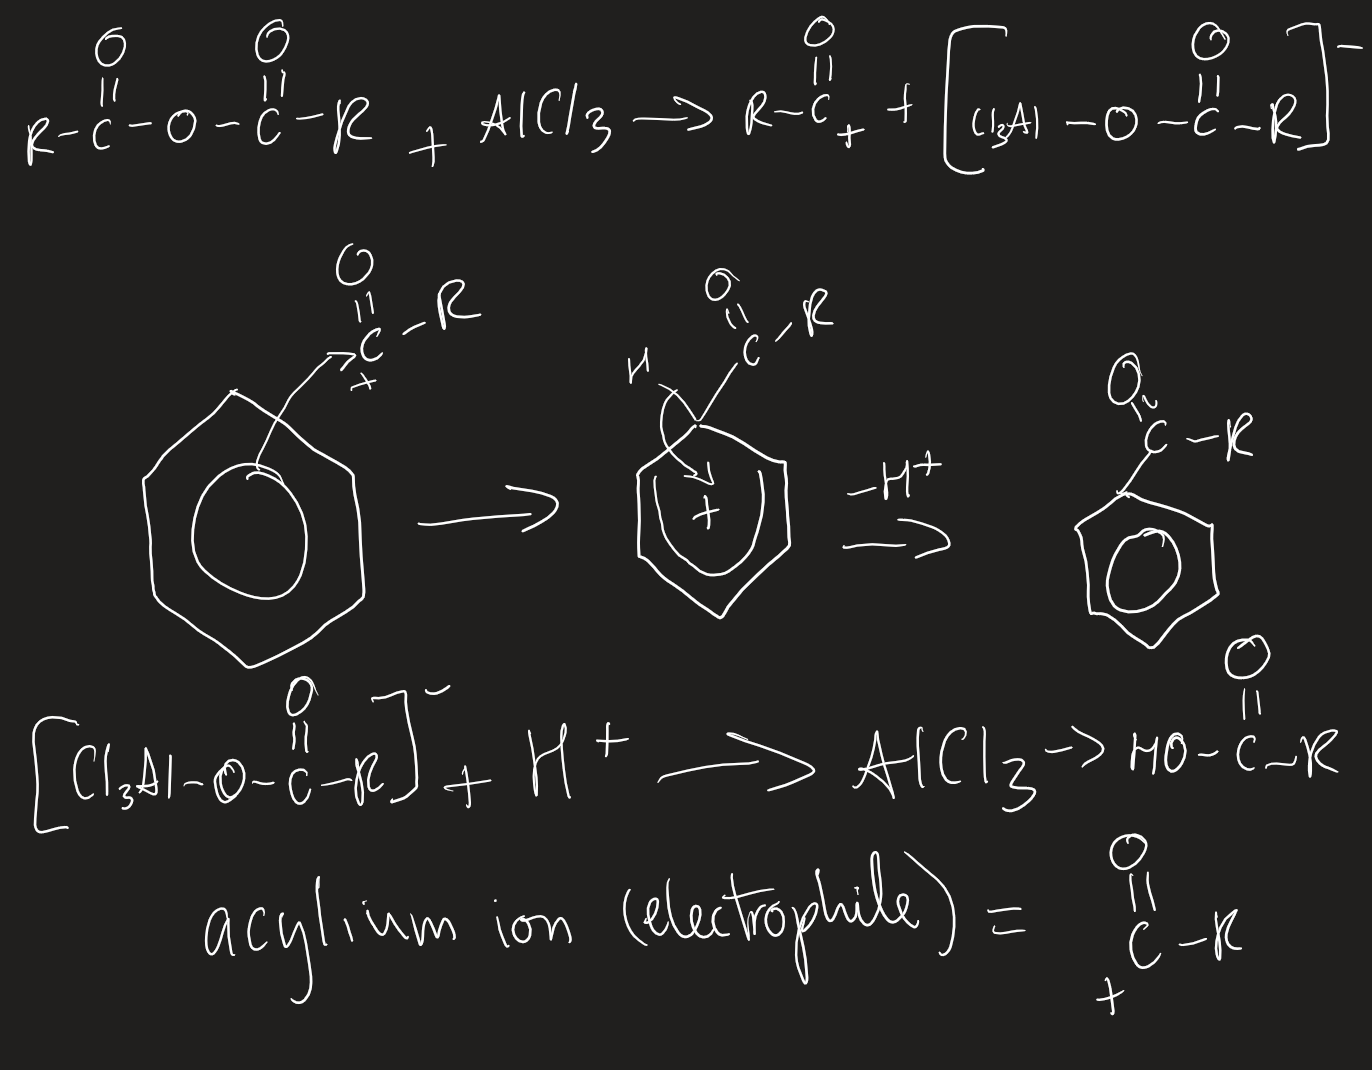 O O O O
R-C-O-C-R + AlCl3 → R-C+ + [Cl3Al-O-C-R]-
O O
C-R C-R
+ H
O
+ -H+ → C-R
O O
[Cl3Al-O-C-R]- + H+ → AlCl3 → HO-C-R
O
acylium ion (electrophile) = C-R
+